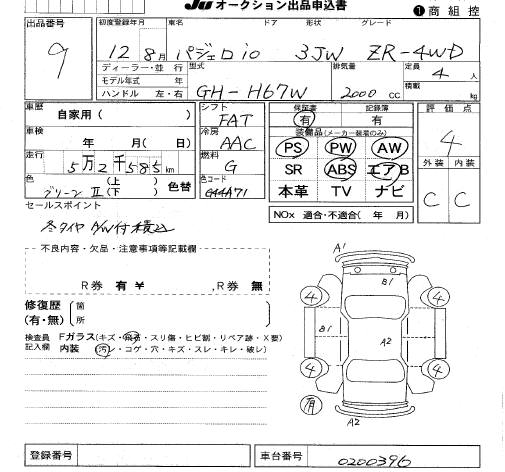 JU オークション出品申込書 ❶商 組 控
出品番号 初度登録年月 車名 ドア 形状 グレード
9 12年 8月 パジェロio 3JW ZR-4WD
ディーラー・並 行 型式 排気量 定員
モデル年式 年 4 人
ハンドル 左・右 GH-H67W 2000 CC 積載 kg
車歴 自家用( ) シフト FAT 保証書 有 記録簿 有 評 価 点
車検 年 月( 日) 冷房 AAC 装備品(メーカー装着のみ) 4
PS PW AW
走行 5万2千585km 燃料 G SR ABS エアB 外装 内装
色 グリーンⅡ (上)(下) 色替 色コード GA4A71 本革 TV ナビ C C
NOx 適合・不適合( 年 月)
セールスポイント
冬タイヤ A/W付積込
不良内容・欠品・注意事項等記載欄
R券 有 ¥ R券 無
修復歴 箇
(有・無) 所
検査員 Fガラス(キズ・飛石・スリ傷・ヒビ割・リペア跡・X要)
記入欄 内装 (汚レ・コゲ・穴・キズ・スレ・キレ・破レ)
A1
B1
4 4
B1 A2
4 4
有 A2
登録番号 車台番号 0200396